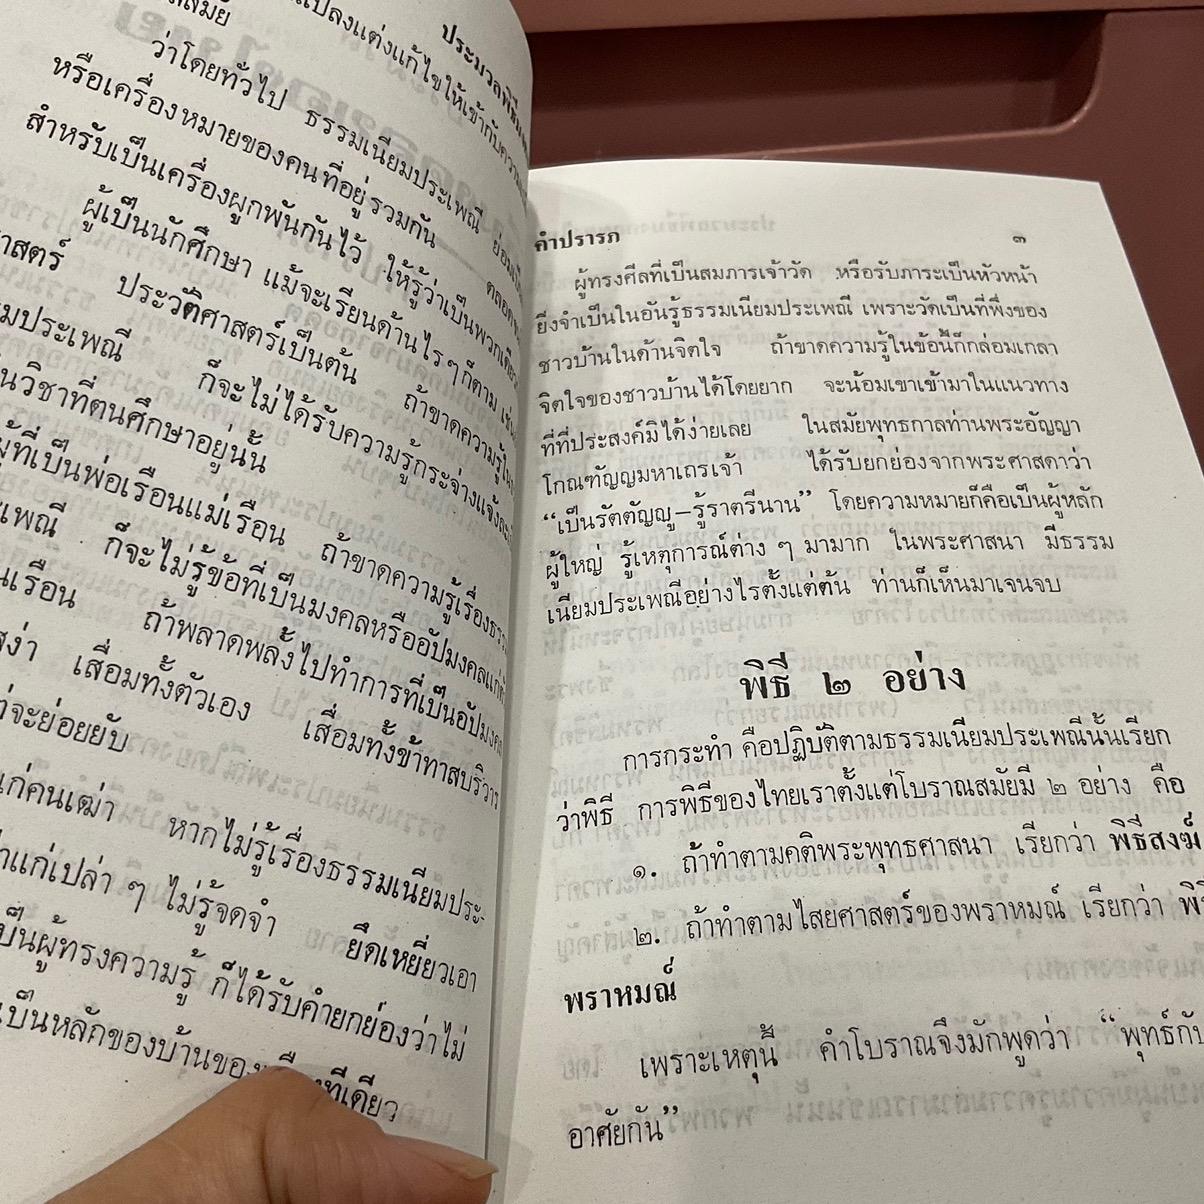 ประมวลพิธีมงคล
แปลงแต่งแก้ไขให้เข้ากับความ
สมัย
ว่าโดยทั่วไป ธรรมเนียมประเพณี ย่อมเป็น
หรือเครื่องหมายของคนที่อยู่รวมกัน ตลอด
สำหรับเป็นเครื่องผูกพันกันไว้ ให้รู้ว่าเป็นพวกเดียว
ผู้เป็นนักศึกษา แม้จะเรียนด้านไรๆ ก็ตาม เช่น
ศาสตร์ ประวัติศาสตร์เป็นต้น ถ้าขาดความรู้ใน
ประเพณี ก็จะไม่ได้รับความรู้กระจ่างแจ้ง
วิชาที่ตนศึกษาอยู่นั้น
ผู้ที่เป็นพ่อเรือนแม่เรือน ถ้าขาดความรู้เรื่อง
เพณี ก็จะไม่รู้ข้อที่เป็นมงคลหรืออัปมงคลแก่
เรือน ถ้าพลาดพลั้งไปทำการที่เป็นอัปมงคล
สง่า เสื่อมทั้งตัวเอง เสื่อมทั้งข้าทาสบริวาร
จะย่อยยับ
แก่คนเฒ่า หากไม่รู้เรื่องธรรมเนียมประ-
แก่เปล่า ๆ ไม่รู้จดจำ ยึดเหยี่ยวเอา
เป็นผู้ทรงความรู้ ก็ได้รับคำยกย่องว่าไม่
เป็นหลักของบ้านของ ทีเดียว
คำปรารภ ๓
ผู้ทรงศีลที่เป็นสมภารเจ้าวัด หรือรับภาระเป็นหัวหน้า
ยิ่งจำเป็นในอันรู้ธรรมเนียมประเพณี เพราะวัดเป็นที่พึ่งของ
ชาวบ้านในด้านจิตใจ ถ้าขาดความรู้ในข้อนี้ก็กล่อมเกลา
จิตใจของชาวบ้านได้โดยยาก จะน้อมเขาเข้ามาในแนวทาง
ที่ที่ประสงค์มิได้ง่ายเลย ในสมัยพุทธกาลท่านพระอัญญา
โกณฑัญญมหาเถรเจ้า ได้รับยกย่องจากพระศาสดาว่า
“เป็นรัตตัญญู–รู้ราตรีนาน” โดยความหมายก็คือเป็นผู้หลัก
ผู้ใหญ่ รู้เหตุการณ์ต่าง ๆ มามาก ในพระศาสนา มีธรรม
เนียมประเพณีอย่างไรตั้งแต่ต้น ท่านก็เห็นมาเจนจบ
พิธี ๒ อย่าง
การกระทำ คือปฏิบัติตามธรรมเนียมประเพณีนั้นเรียก
ว่าพิธี การพิธีของไทยเราตั้งแต่โบราณสมัยมี ๒ อย่าง คือ
๑. ถ้าทำตามคติพระพุทธศาสนา เรียกว่า พิธีสงฆ์
๒. ถ้าทำตามไสยศาสตร์ของพราหมณ์ เรียกว่า พิธี
พราหมณ์
เพราะเหตุนี้ คำโบราณจึงมักพูดว่า “พุทธ์กับ
อาศัยกัน”